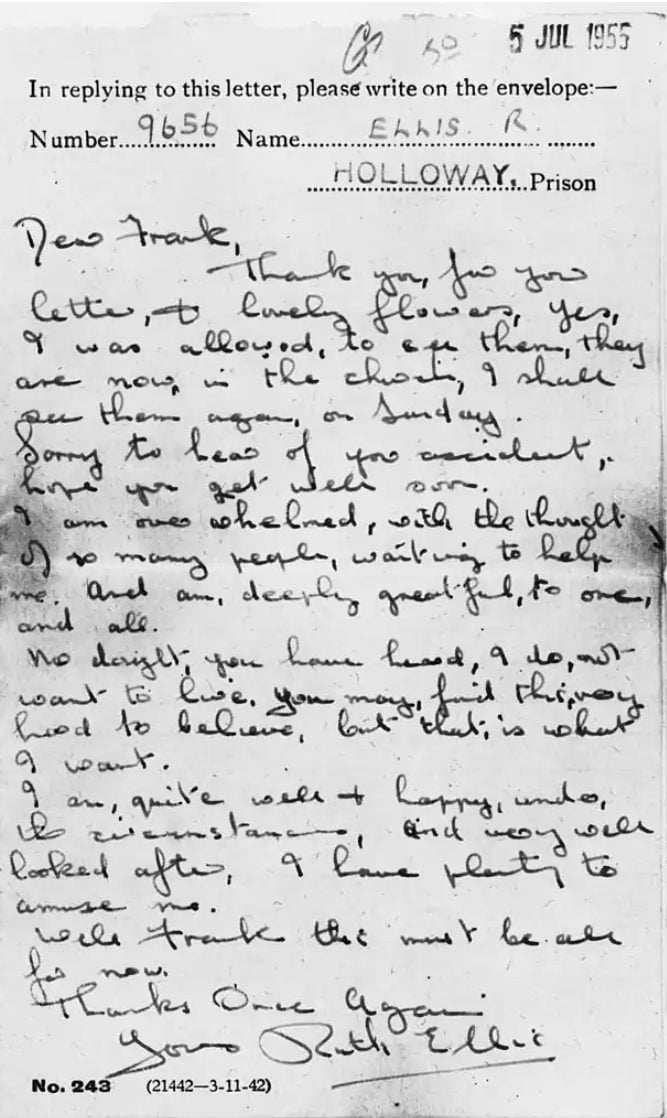 5 JUL 1955
In replying to this letter, please write on the envelope:—
Number 9656 Name ELLIS. R.
HOLLOWAY, Prison
Dear Frank,
Thank you, for your
letter, + lovely flowers, yes,
I was allowed, to see them, they
are now, in the church, I shall
see them again, on Sunday.
Sorry to hear of your accident,
hope you get well soon.
I am over whelmed, with the thought
of so many people, waiting to help
me. And am, deeply greatful, to one,
and all.
No dought, you have heard, I do, not
want to live. you may, find this, very
hard to believe, but that, is what
I want.
I am, quite well + happy, under,
the circumstances, And very well
looked after, I have plenty to
amuse me.
Well Frank this must be all
for now.
Thanks Once Again
Yours Ruth Ellis
No. 243 (21442—3-11-42)